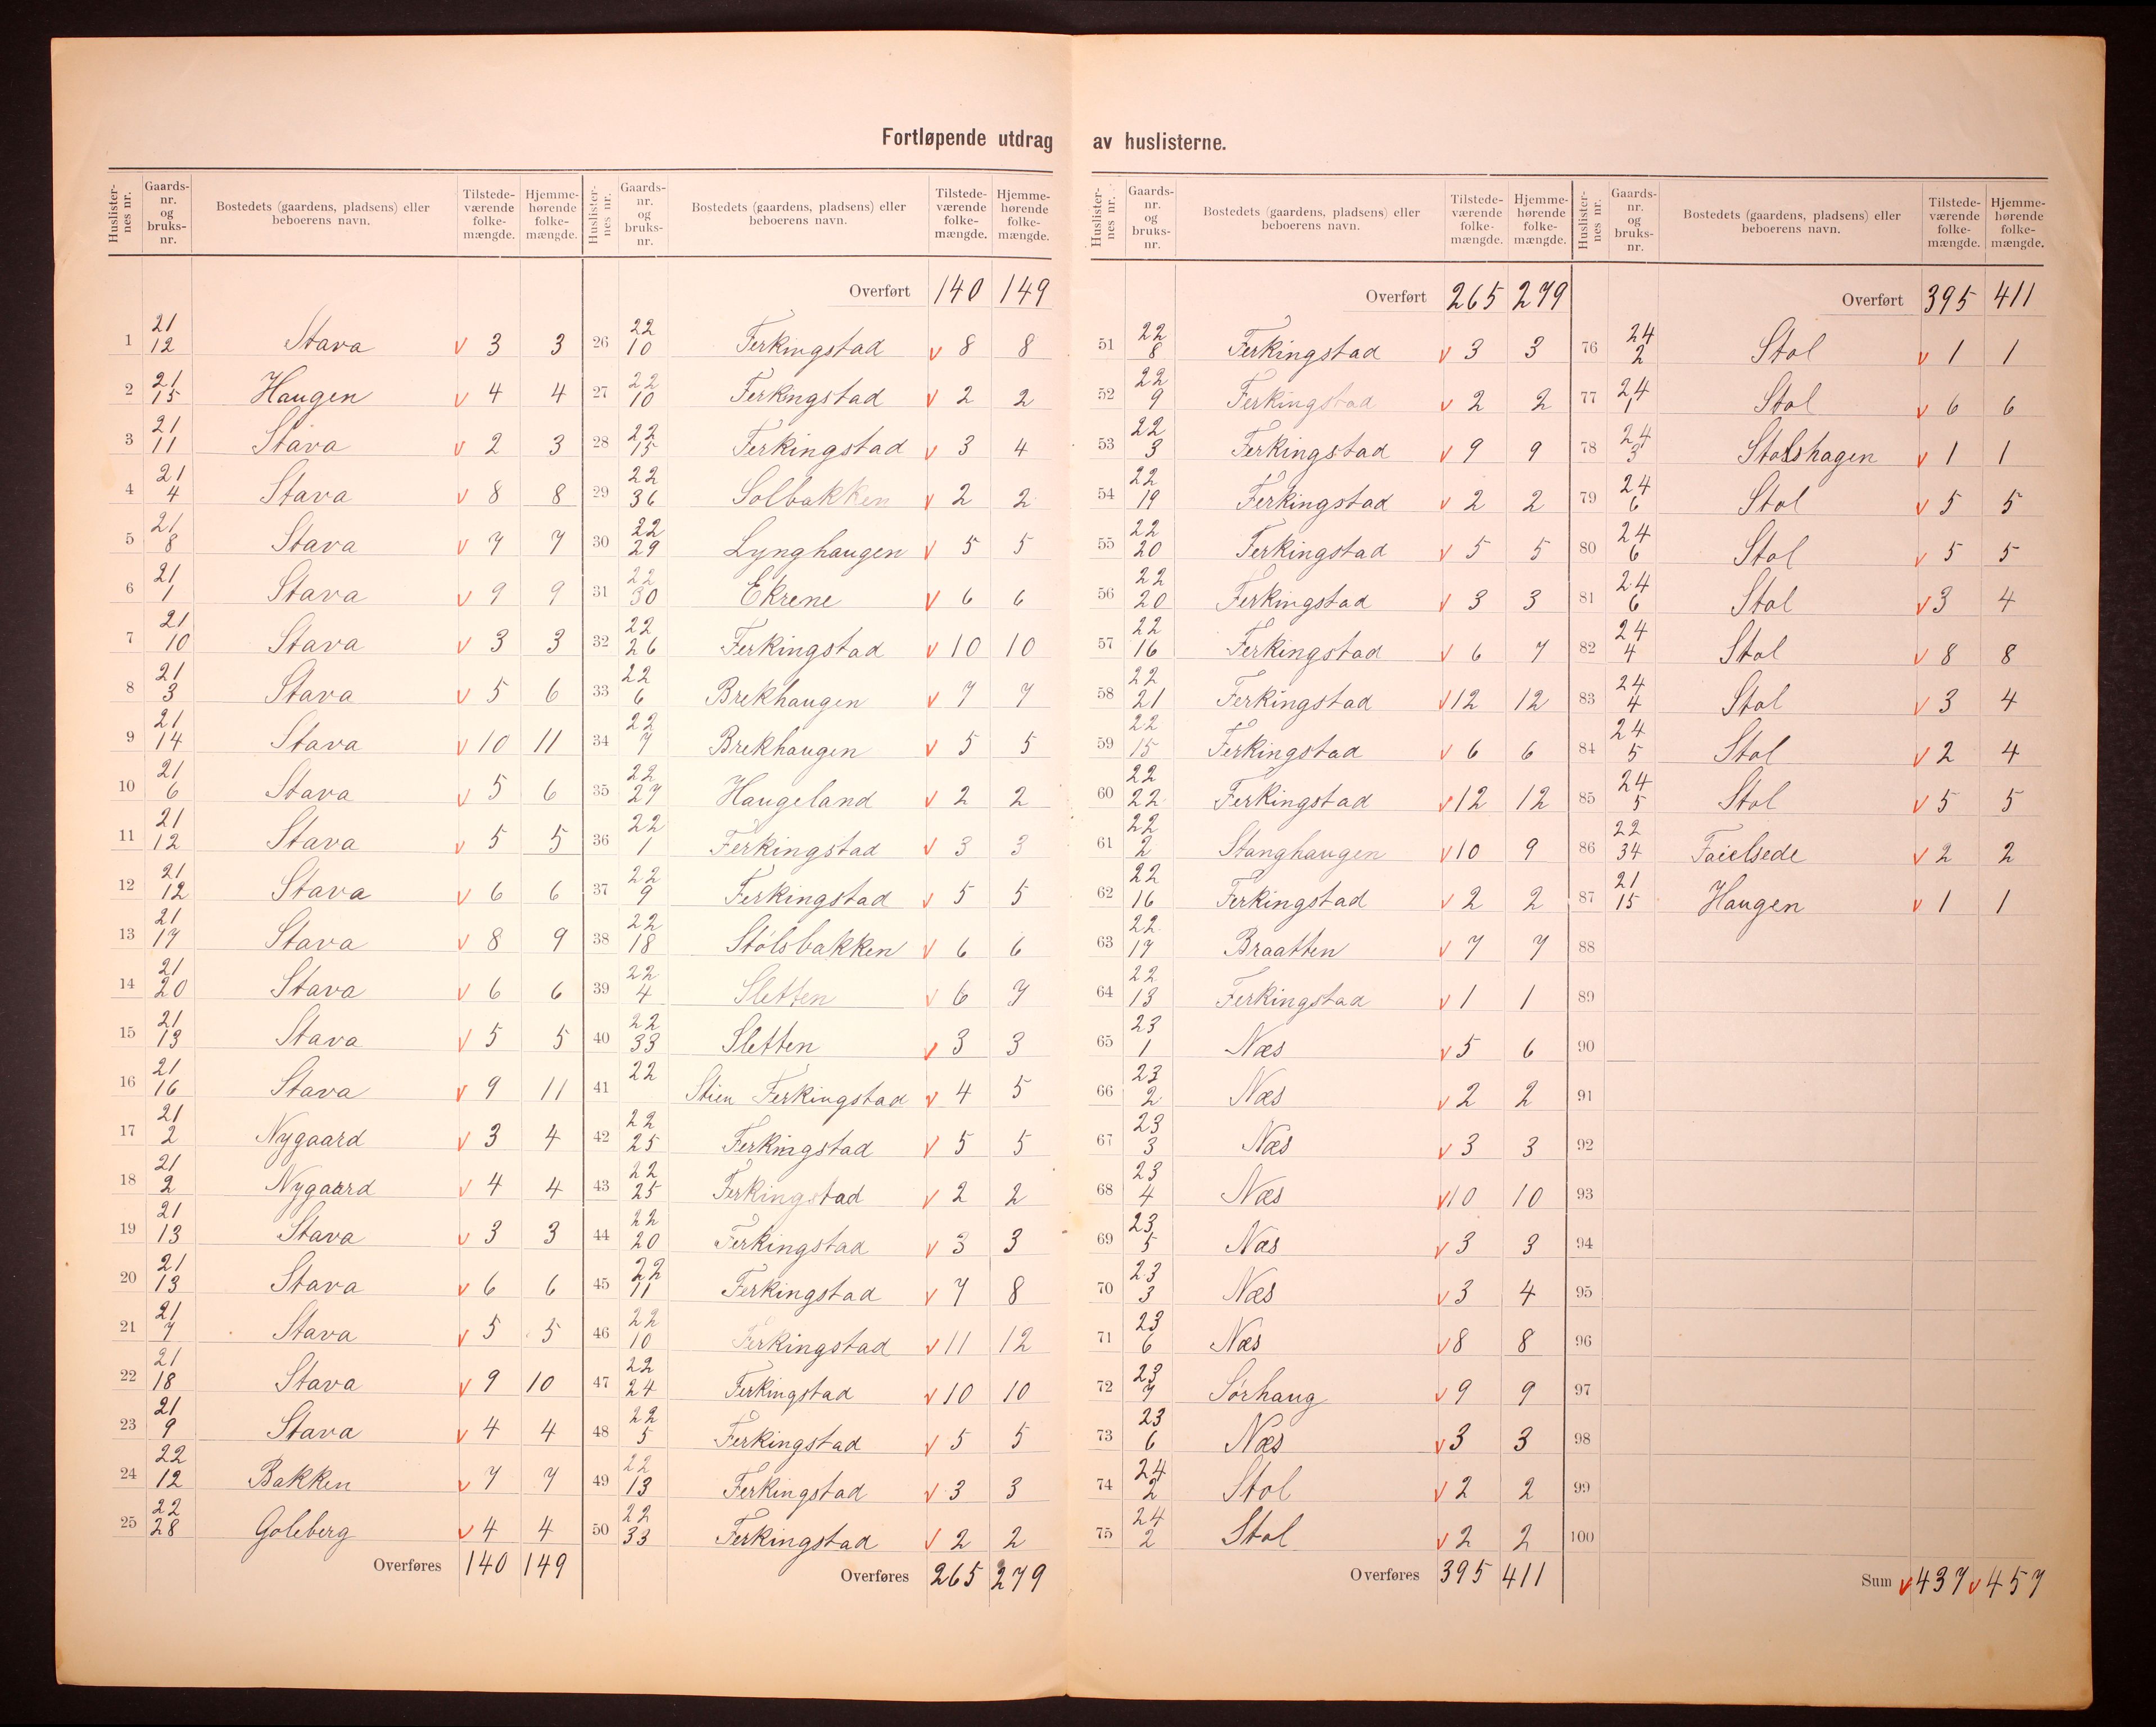 Fortløpende utdrag av huslisterne.
Huslisternes nr. Gaards-nr. og bruks-nr. Bostedets (gaardens, pladsens) eller beboerens navn. Tilstede-værende folke-mængde. Hjemme-hørende folke-mængde.
Overført 140 149
1 21 12 Stava v 3 3
2 21 15 Haugen v 4 4
3 21 11 Stava v 2 3
4 21 4 Stava v 8 8
5 21 8 Stava v 7 7
6 21 1 Stava v 9 9
7 21 10 Stava v 3 3
8 21 3 Stava v 5 6
9 21 14 Stava v 10 11
10 21 6 Stava v 5 6
11 21 12 Stava v 5 5
12 21 12 Stava v 6 6
13 21 17 Stava v 8 9
14 21 20 Stava v 6 6
15 21 13 Stava v 5 5
16 21 16 Stava v 9 11
17 21 2 Nygaard v 3 4
18 21 2 Nygaard v 4 4
19 21 13 Stava v 3 3
20 21 13 Stava v 6 6
21 21 7 Stava v 5 5
22 21 18 Stava v 9 10
23 21 9 Stava v 4 4
24 22 12 Bakken v 7 7
25 22 28 Goleberg v 4 4
Overføres 140 149
Huslisternes nr. Gaards-nr. og bruks-nr. Bostedets (gaardens, pladsens) eller beboerens navn. Tilstede-værende folke-mængde. Hjemme-hørende folke-mængde.
26 22 10 Ferkingstad v 8 8
27 22 10 Ferkingstad v 2 2
28 22 15 Ferkingstad v 3 4
29 22 36 Solbakken v 2 2
30 22 29 Lynghaugen v 5 5
31 22 30 Ekrene v 6 6
32 22 26 Ferkingstad v 10 10
33 22 6 Brekhaugen v 7 7
34 22 7 Brekhaugen v 5 5
35 22 27 Haugeland v 2 2
36 22 1 Ferkingstad v 3 3
37 22 9 Ferkingstad v 5 5
38 22 18 Stølsbakken v 6 6
39 22 4 Sletten v 6 7
40 22 33 Sletten v 3 3
41 22 Stien Ferkingstad v 4 5
42 22 25 Ferkingstad v 5 5
43 22 25 Ferkingstad v 2 2
44 22 20 Ferkingstad v 3 3
45 22 11 Ferkingstad v 7 8
46 22 10 Ferkingstad v 11 12
47 22 24 Ferkingstad v 10 10
48 22 5 Ferkingstad v 5 5
49 22 13 Ferkingstad v 3 3
50 22 33 Ferkingstad v 2 2
Overføres 265 279
Huslisternes nr. Gaards-nr. og bruks-nr. Bostedets (gaardens, pladsens) eller beboerens navn. Tilstede-værende folke-mængde. Hjemme-hørende folke-mængde.
Overført 265 279
51 22 8 Ferkingstad v 3 3
52 22 9 Ferkingstad v 2 2
53 22 3 Ferkingstad v 9 9
54 22 19 Ferkingstad v 2 2
55 22 20 Ferkingstad v 5 5
56 22 20 Ferkingstad v 3 3
57 22 16 Ferkingstad v 6 7
58 22 21 Ferkingstad v 12 12
59 22 15 Ferkingstad v 6 6
60 22 22 Ferkingstad v 12 12
61 22 2 Stanghaugen v 10 9
62 22 16 Ferkingstad v 2 2
63 22 17 Braatten v 7 7
64 22 13 Ferkingstad v 1 1
65 23 1 Næs v 5 6
66 23 2 Næs v 2 2
67 23 3 Næs v 3 3
68 23 4 Næs v 10 10
69 23 5 Næs v 3 3
70 23 3 Næs v 3 4
71 23 6 Næs v 8 8
72 23 7 Sørhaug v 9 9
73 23 6 Næs v 3 3
74 24 2 Stol v 2 2
75 24 2 Stol v 2 2
Overføres 395 411
Huslisternes nr. Gaards-nr. og bruks-nr. Bostedets (gaardens, pladsens) eller beboerens navn. Tilstede-værende folke-mængde. Hjemme-hørende folke-mængde.
Overført 395 411
76 24 2 Stol v 1 1
77 24 1 Stol v 6 6
78 24 3 Stolshagen v 1 1
79 24 6 Stol v 5 5
80 24 6 Stol v 5 5
81 24 6 Stol v 3 4
82 24 4 Stol v 8 8
83 24 4 Stol v 3 4
84 24 5 Stol v 2 4
85 24 5 Stol v 5 5
86 22 34 v 2 2
87 21 15 Haugen v 1 1
88
89
90
91
92
93
94
95
96
97
98
99
100
Sum v 437 v 457